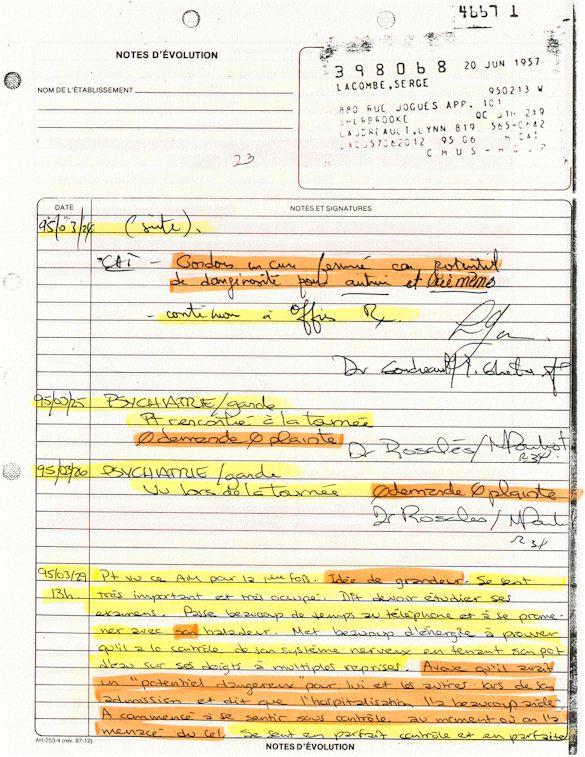 4667 1
NOTES D'ÉVOLUTION
398068 20 JUN 1957
LACOMBE, SERGE
NOM DE L'ÉTABLISSEMENT
950213 W
880 RUE JOGUES APP. 101
SHERBROOKE QC J1H 2X9
GAUDREAULT, LYNN 819 565-0642
LACS57062012 95 06 M CAT
CHUS-
23
DATE
NOTES ET SIGNATURES
95/03/24 (suite).
CAT - Gardons en cure fermée car potentiel
de dangerosité pour autrui et lui même
- continuer à offrir Rx.
Dr
95/03/25 PSYCHIATRIE/garde
Pt rencontré à la tournée
Ø demande Ø plainte
Dr Rosales/
R3Ψ
95/03/26 PSYCHIATRIE/garde
Vu lors de la tournée Ø demande Ø plainte
Dr Rosales/
R3Ψ
95/03/29 Pt vu ce AM pour la 1ère fois. Idée de grandeur. Se sent
13h très important et très occupé. Dit devoir étudier ses
examens. Passe beaucoup de temps au téléphone et à se prome-
ner avec son baladeur. Met beaucoup d'énergie à prouver
qu'il a le contrôle de son système nerveux en tenant son pot
d'eau sur ses doigts à multiples reprises. Avoue qu'il avait
un "potentiel dangereux" pour lui et les autres lors de son
admission et dit que l'hospitalisation l'a beaucoup aidé.
A commencé à se sentir sans contrôle au moment où on l'a
menacé du Se sent en parfait contrôle et en parfaite
AH-253-4 (rev. 87-12)
NOTES D'ÉVOLUTION